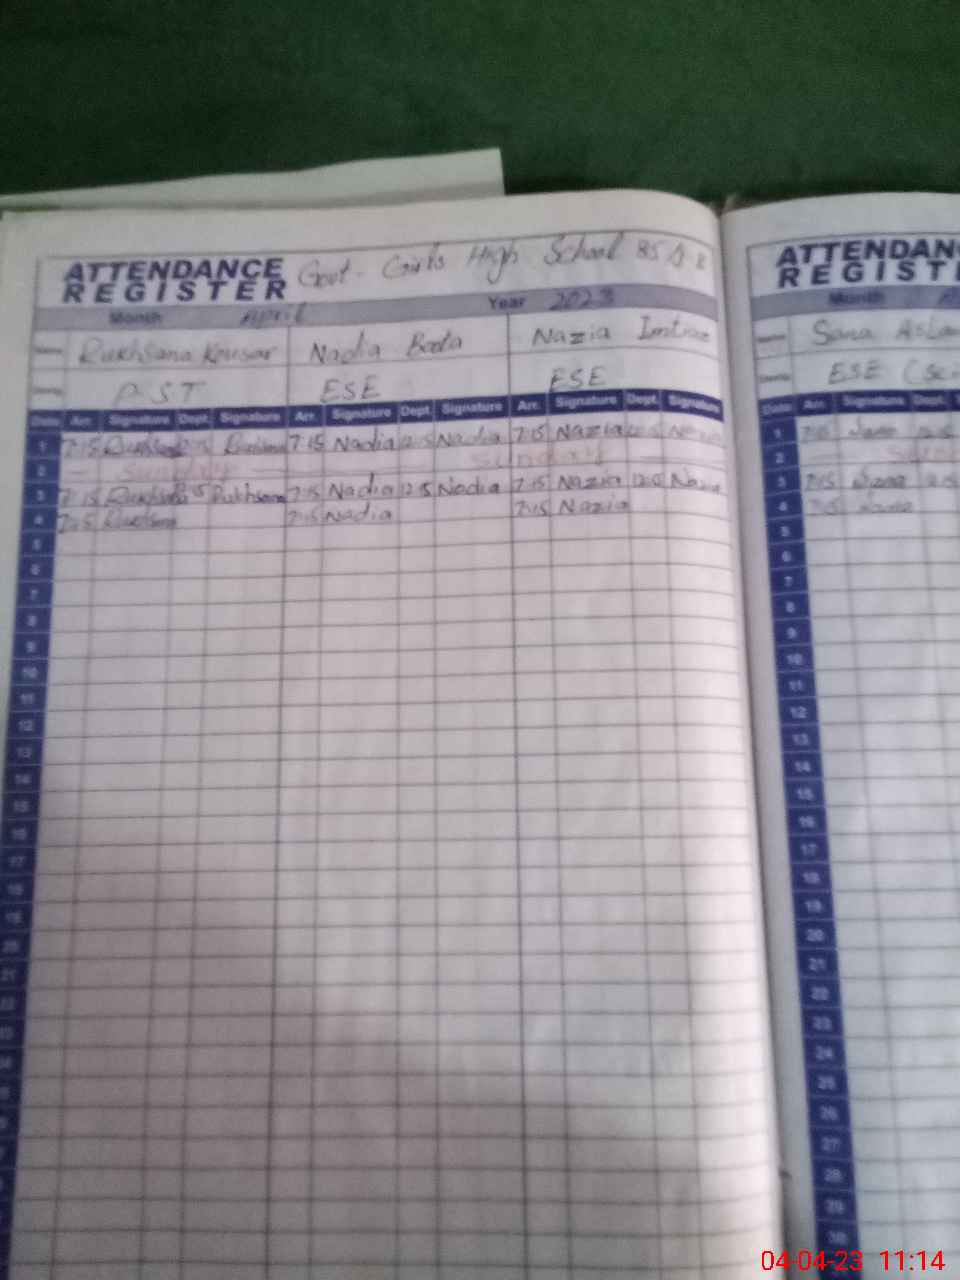 ATTENDANCE REGISTER Govt - Girls High School 85
Month April Year 2023
Name Rukhsana Kousar Nadia Boota Nazia Imtiaz
P.S.T ESE ESE
Date Arr. Signature Dept. Signature Arr. Signature Dept. Signature Arr. Signature Dept. Signature
1 7:15 Rukhsana Rukhsana 7:15 Nadia 12:15 Nadia 7:15 Nazia 12:15 Nazia
2 Sunday Sunday
3 7:15 Rukhsana Rukhsana 7:15 Nadia 12:15 Nadia 7:15 Nazia Nazia
4 7:15 Rukhsana 7:15 Nadia 7:15 Nazia
5
6
7
8
9
10
11
12
13
14
15
16
17
18
19
20
21
ATTENDANCE REGISTER
Month
Name Sana Asla
ESE (Sci
Date Arr. Signature Dept.
1 7:15 Sana
2
3 7:15 Sana
4 7:15 Sana
5
6
7
8
9
10
11
12
13
14
15
16
17
18
19
20
21
22
23
24
25
26
27
28
29
30
04-04-23 11:14